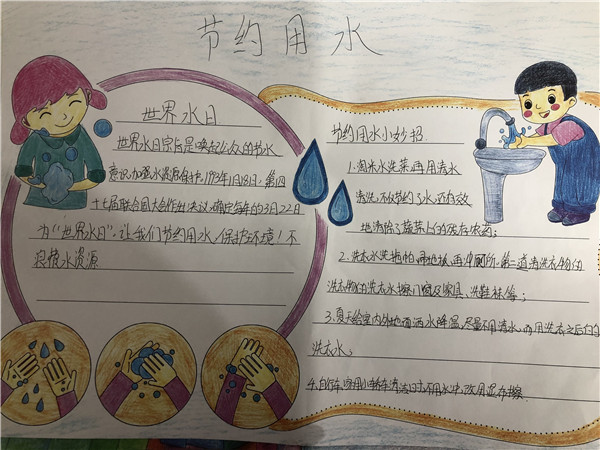 节约用水
世界水日
世界水日宗旨是唤起公众的节水
意识,加强水资源保护.1993年1月18日,第四
十七届联合国大会作出决议,确定每年的3月22日
为“世界水日”.让我们节约用水,保护环境!不
浪费水资源
节约用水小妙招
1.淘米水洗菜,再用清水
清洗,不仅节约了水,还有效
地清除了蔬菜上的残存农药;
2.洗衣水洗拖帕、再冲厕所.第二道清洗衣物的
洗衣水擦门窗及家具、洗鞋袜等;
3.夏天给室内外地面洒水降温,尽量不用清水,用洗衣之后的
洗衣水;
4.自行车、家用小轿车清洁时,不用水冲,改用湿布擦.